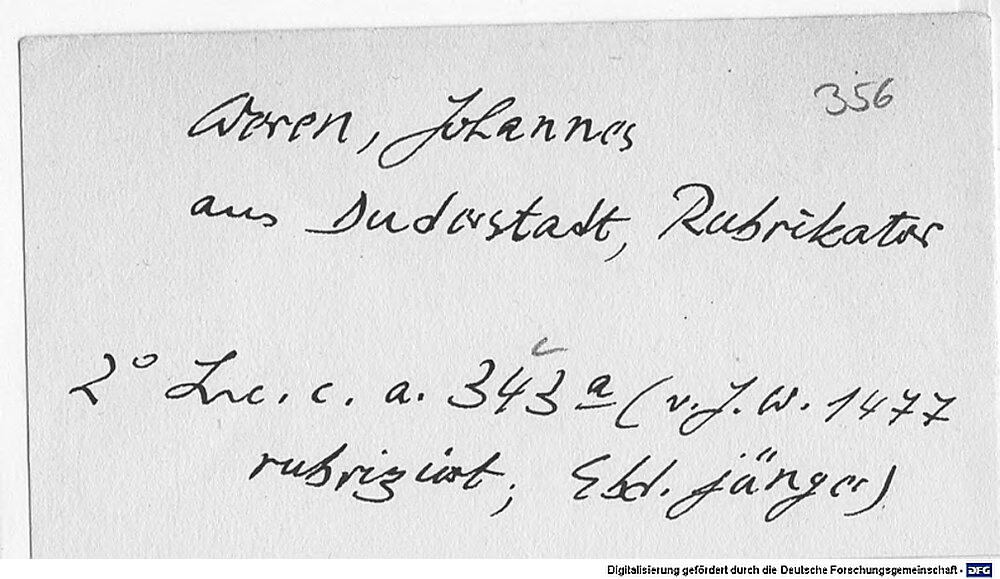 356
Weren, Johannes
aus Duderstadt, Rubrikator
2° Inc. c. a. 343 a (v. J. W. 1477
rubriziert; Ebd. jünger)
Digitalisierung gefördert durch die Deutsche Forschungsgemeinschaft - DFG